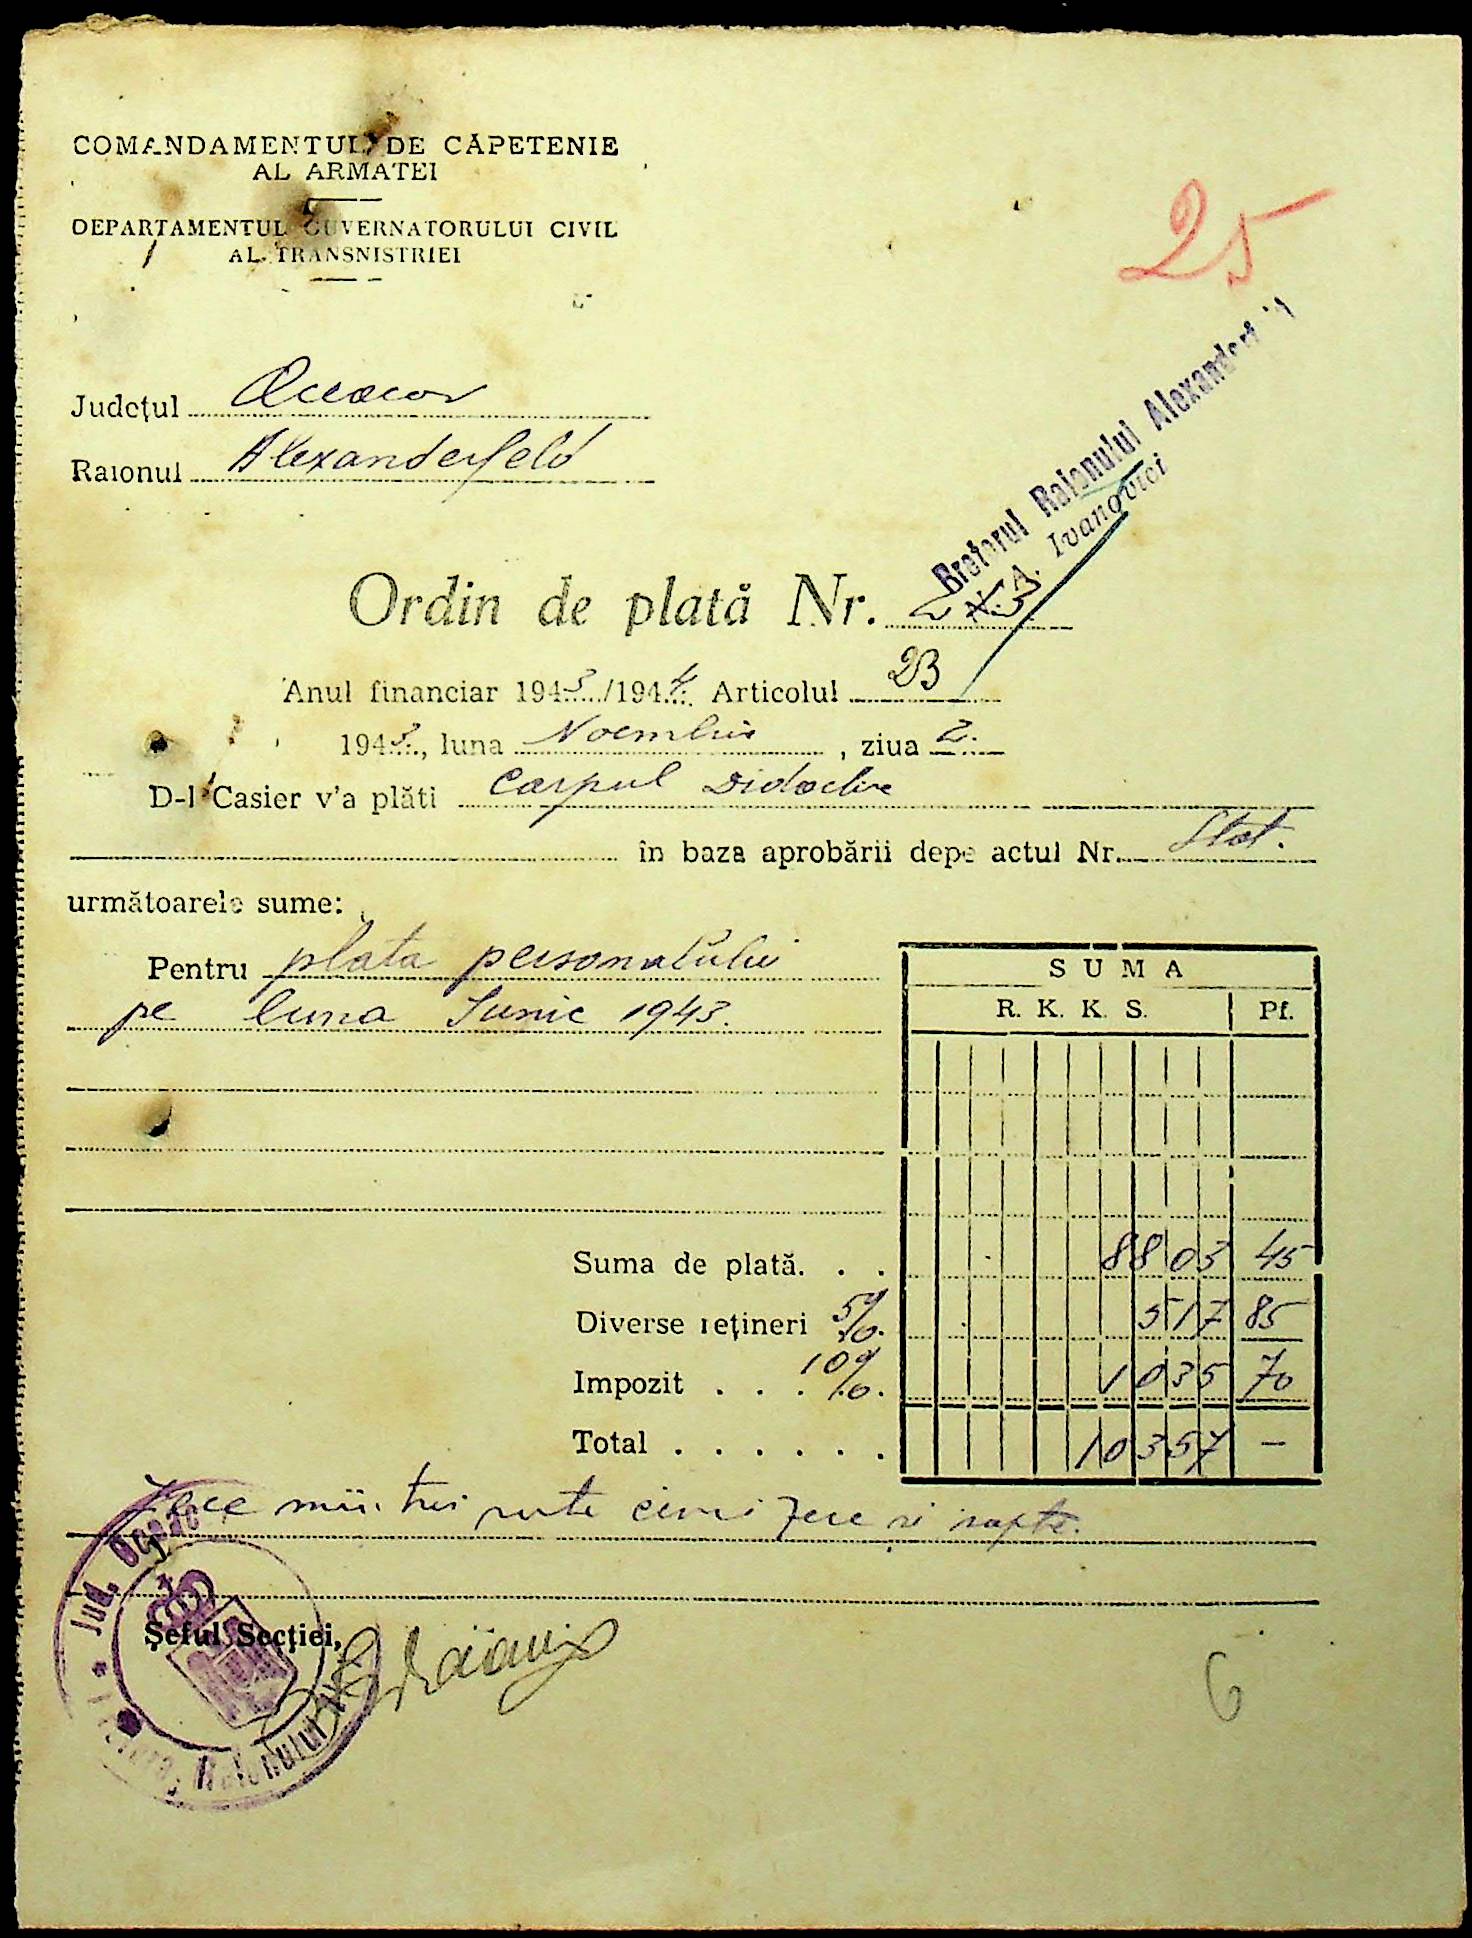 COMANDAMENTUL DE CĂPETENIE
AL ARMATEI
DEPARTAMENTUL GUVERNATORULUI CIVIL
AL TRANSNISTRIEI
25
Județul Oceacov
Raionul Alexanderfeld
Pretorul Raionului Alexanderfeld
A. Ivanovici
Ordin de plată Nr.
Anul financiar 1943/1944 Articolul 23
1943, luna Noembrie, ziua 2.
D-l Casier v'a plăti Corpul Didactic
în baza aprobării depe actul Nr. Stat.
următoarele sume:
Pentru plata personalului
pe luna Iunie 1943.
SUMA
R. K. K. S. Pf.
Suma de plată. . . 8803 45
Diverse rețineri 5%. 517 85
Impozit . . . 10%. 1035 70
Total . . . . . . 10357 —
Zece mii trei sute cinci zece si sapte.
Șeful Secției,
Jud. Oceacov
Raionului
6